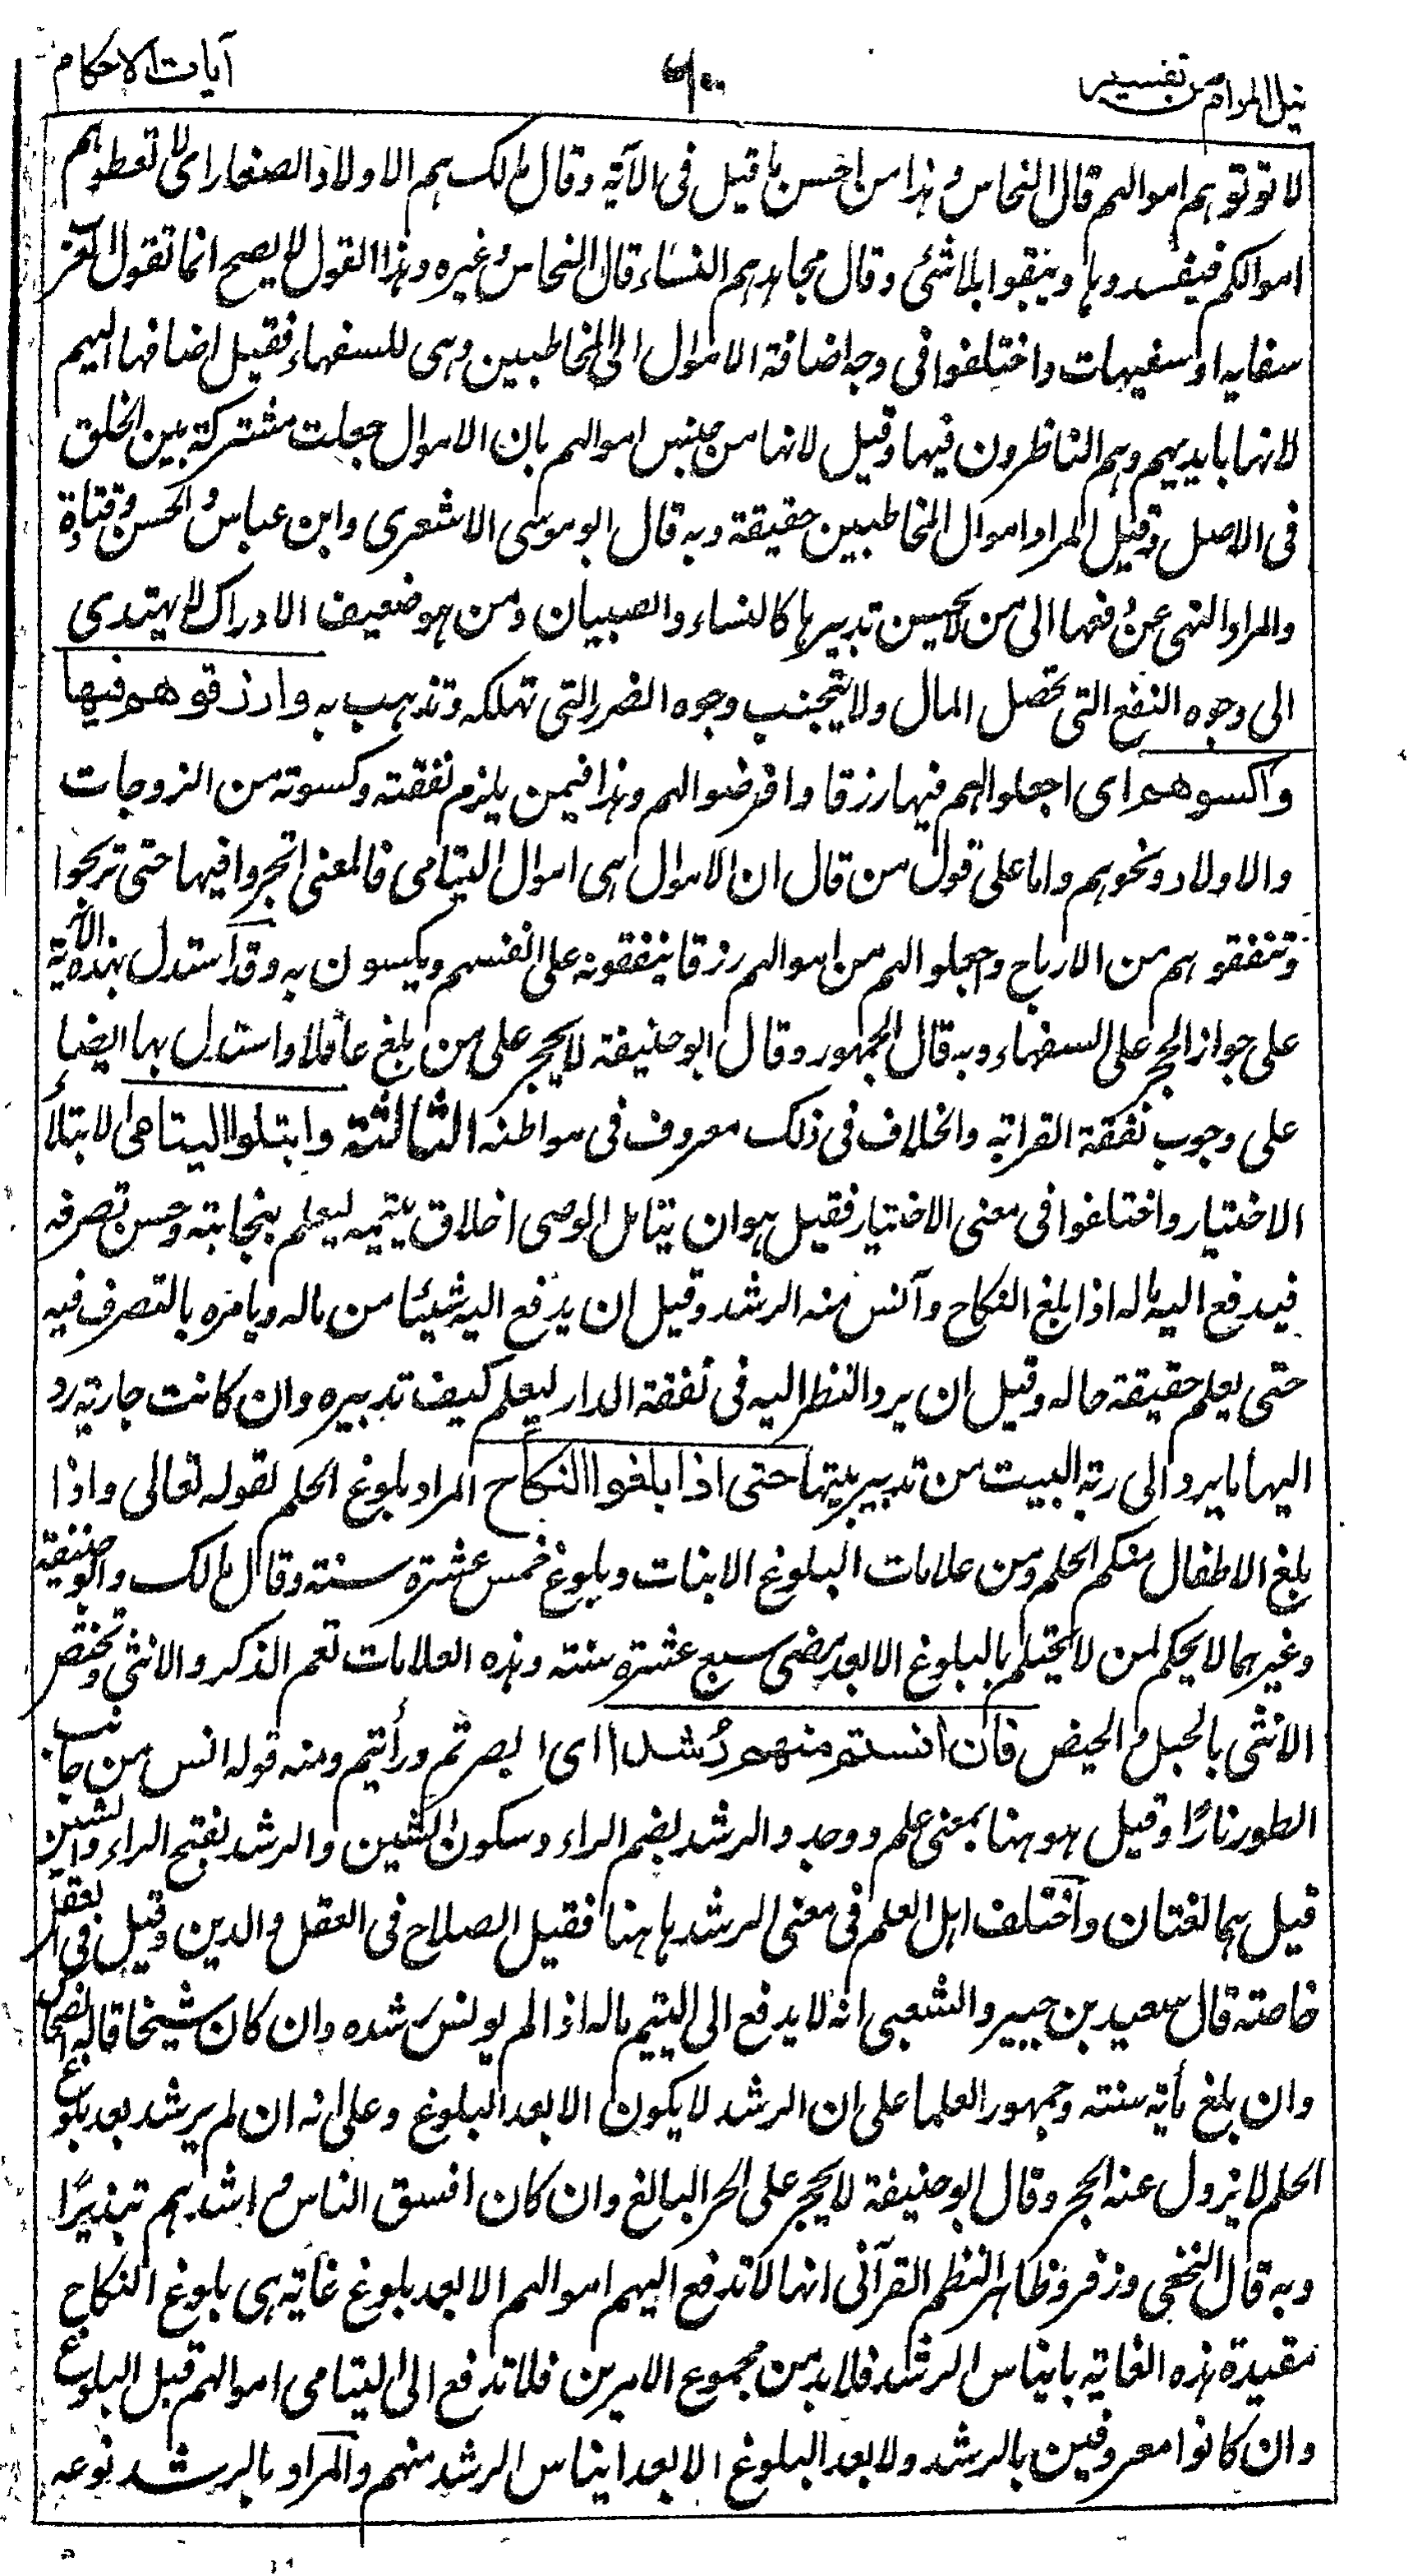 نيل المرام من تفسير
آيات الاحكام
لا توتوهم اموالهم قال النحاس وهذا من احسن ما قيل فى الآية وقال مالك هم الاولاد الصغار اى لا تعطوهم
اموالكم فيفسدوها ويبقوا بلا شئ وقال مجاهد هم النساء قال النحاس وغيره وهذا القول لا يصح انما تقول العرب
سفايه او سفيهات واختلفوا فى وجه اضافة الاموال الى المخاطبين وهى للسفهاء فقيل اضافها اليهم
لانها بايديهم وهم الناظرون فيها وقيل لانها من جنس اموالهم بان الاموال جعلت مشتركة بين الخلق
فى الاصل وقيل المراد اموال المخاطبين حقيقة وبه قال ابو موسى الاشعرى وابن عباس والحسن وقتادة
والمراد النهى عن دفعها الى من لا يحسن تدبيرها كالنساء والصبيان ومن هو ضعيف الادراك لا يهتدى
الى وجوه النفع التى تحصل المال ولا يتجنب وجوه الضرر التى تهلكه وتذهب به وارزقوهم فيها
واكسوهم اى اجعلوا لهم فيها رزقا وافرضوا لهم وهذا فيمن يلزم نفقته وكسوته من الزوجات
والاولاد ونحوهم واما على قول من قال ان الاموال هى اموال اليتامى فالمعنى اتجروا فيها حتى تربحوا
وتنفقوهم من الارباح واجعلوا لهم من اموالهم رزقا ينفقونه على انفسهم ويكسون به وقد استدل بهذه الآية
على جواز الحجر على السفهاء وبه قال الجمهور وقال ابو حنيفة لا يحجر على من بلغ عاقلا واستدل بها ايضا
على وجوب نفقة القرابة والخلاف فى ذلك معروف فى مواطنه الثالثة وابتلوا اليتامى الابتلاء
الاختيار واختلفوا فى معنى الاختيار فقيل هو ان يتامل الوصى اخلاق يتيمه ليعلم بنجابته وحسن تصرفه
فيدفع اليه ماله اذا بلغ النكاح وآنس منه الرشد وقيل ان يدفع اليه شيئا من ماله ويامره بالتصرف فيه
حتى يعلم حقيقة حاله وقيل ان يرد النظر اليه فى نفقة الدار ليعلم كيف تدبيره وان كانت جارية رد
اليها ما يرد الى ربة البيت من تدبير بيتها حتى اذا بلغوا النكاح المراد بلوغ الحلم لقوله تعالى واذا
بلغ الاطفال منكم الحلم ومن علامات البلوغ الانبات وبلوغ خمس عشرة سنة وقال مالك وابو حنيفة
وغيرهما لا يحكم لمن لا يحتلم بالبلوغ الا بعد مضى سبع عشرة سنة وهذه العلامات تعم الذكر والانثى وتختص
الانثى بالحبل والحيض فان انستم منهم رُشدا اى ابصرتم ورأيتم ومنه قوله انس من جانب
الطور نارًا وقيل هو هنا بمعنى علم ووجد والرشد بضم الراء وسكون الشين والرشد بفتح الراء والشين
قيل هما لغتان واختلف اهل العلم فى معنى الرشد هاهنا فقيل الصلاح فى العقل والدين وقيل فى العقل
خاصة قال سعيد بن جبير والشعبى انه لا يدفع الى اليتيم ماله اذا لم يونس رشده وان كان شيخا قال الضحاك
وان بلغ مأية سنة وجمهور العلما على ان الرشد لا يكون الا بعد البلوغ وعلى انه ان لم يرشد بعد بلوغ
الحلم لا يزول عنه الحجر وقال ابو حنيفة لا يحجر على الحر البالغ وان كان افسق الناس واشدهم تبذيرًا
وبه قال النخعى وزفر وظاهر النظم القرآنى انها لا تدفع اليهم اموالهم الا بعد بلوغ غاية هى بلوغ النكاح
مقيدة هذه الغاية بايناس الرشد فلا بد من مجموع الامرين فلا تدفع الى اليتامى اموالهم قبل البلوغ
وان كانوا معروفين بالرشد ولا بعد البلوغ الا بعد ايناس الرشد منهم والمراد بالرشد نوعه